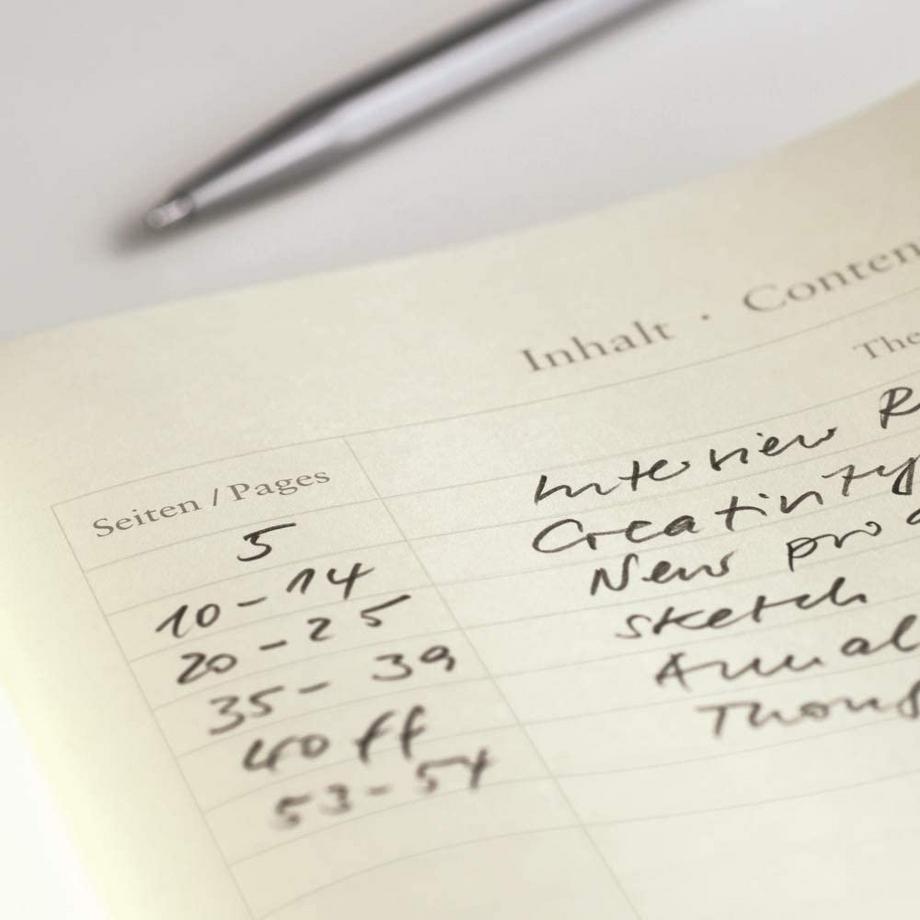 Inhalt · Conten
Seiten / Pages The
5 Interview R
10-14 Creativity
20-25 New prod
35-39 Sketch
40 ff Annual
53-54 Thoug